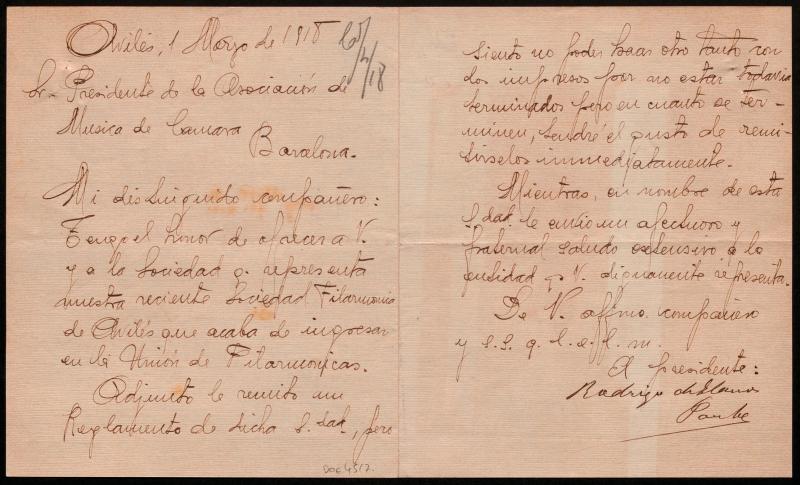 Avilés, 1 Marzo de 1918
Sr. Presidente de la Asociación de
Musica de Camara
Barcelona.
Mi distinguido compañero:
Tengo el honor de ofrecer a V.
y a la Sociedad q. representa
nuestra reciente Sociedad Filarmonica
de Avilés que acaba de ingresar
en la Unión de Filarmonicas.
Adjunto le remito un
Reglamento de dicha S. dad., pero
siento no poder hacer otro tanto con
los impresos por no estar todavia
terminados pero en cuanto se ter-
minen, tendré el gusto de remi-
tirselos inmediatamente.
Mientras, en nombre de esta
S. dad. le envio un afectuoso y
fraternal saludo extensivo a la
entidad q. V. dignamente representa.
De V. affmo. compañero
y s. s. q. l. e. l. m.
El presidente:
Rodrigo de Llano
Ponte
Doc 4517.